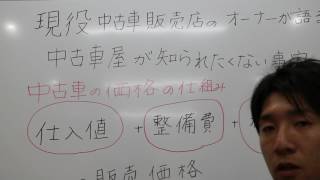 現役中古車販売店のオーナーが語
中古車屋が知られたくない事実
中古車の価格の仕組み
仕入値 + 整備費 +
販売価格